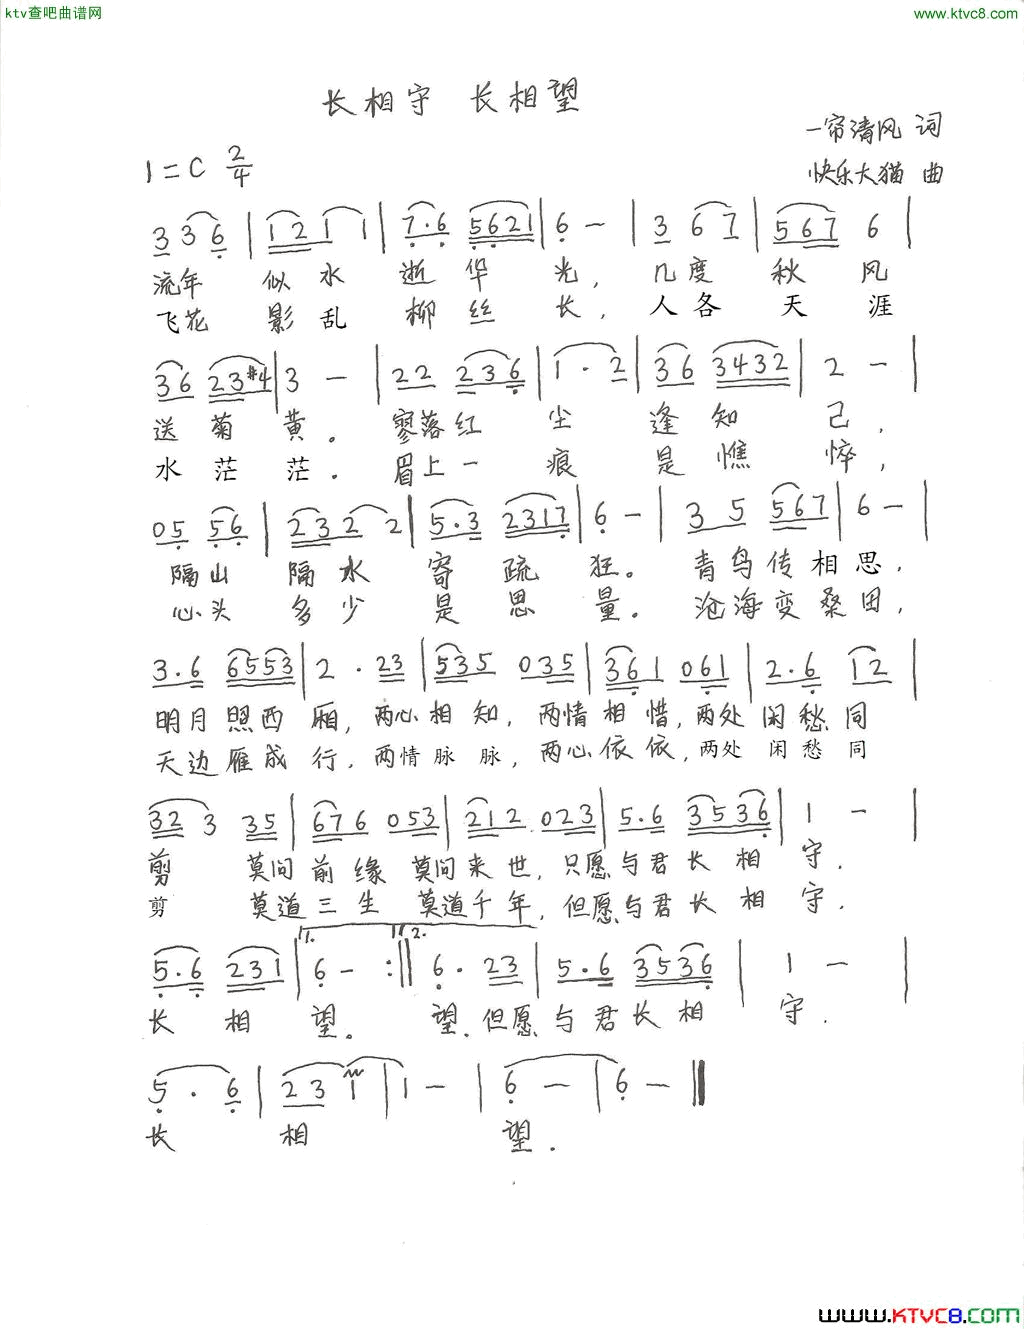 ktv查吧曲谱网
www.ktvc8.com
长相守 长相望
一帘清风 词
1=C 2/4
快乐大猫 曲
3 3 6 | 1 2 1 1 | 7·6 5621 | 6 - | 3 6 7 | 567 6 |
流年 似水 逝华 光, 几度 秋风
飞花 影乱 柳丝 长, 人各 天涯
36 23#4 | 3 - | 22 236 | 1·2 | 36 3432 | 2 - |
送菊 黄。 寥落红 尘 逢知 己,
水茫 茫. 眉上一 痕 是憔 悴,
05 56 | 232 2 | 5·3 2317 | 6 - | 3 5 567 | 6 - |
隔山 隔水 寄疏 狂。 青鸟传相思,
心头 多少 是思 量。 沧海变桑田,
3·6 6553 | 2·23 | 535 035 | 361 061 | 2·6 12 |
明月照西 厢, 两心相知, 两情相惜, 两处闲愁同
天边雁成 行, 两情脉脉, 两心依依, 两处闲愁同
32 3 35 | 676 053 | 212 023 | 5·6 3536 | 1 - |
剪 莫问前缘 莫问来世, 只愿与君长相 守.
剪 莫道三生 莫道千年, 但愿与君长相 守.
5·6 231 | 1. 6 - :|| 2. 6·23 | 5·6 3536 | 1 - |
长相 望。 望.但愿与君长相 守.
5·6 | 23 1 | 1 - | 6 - | 6 - ||
长 相 望.
www.KTVC8.com